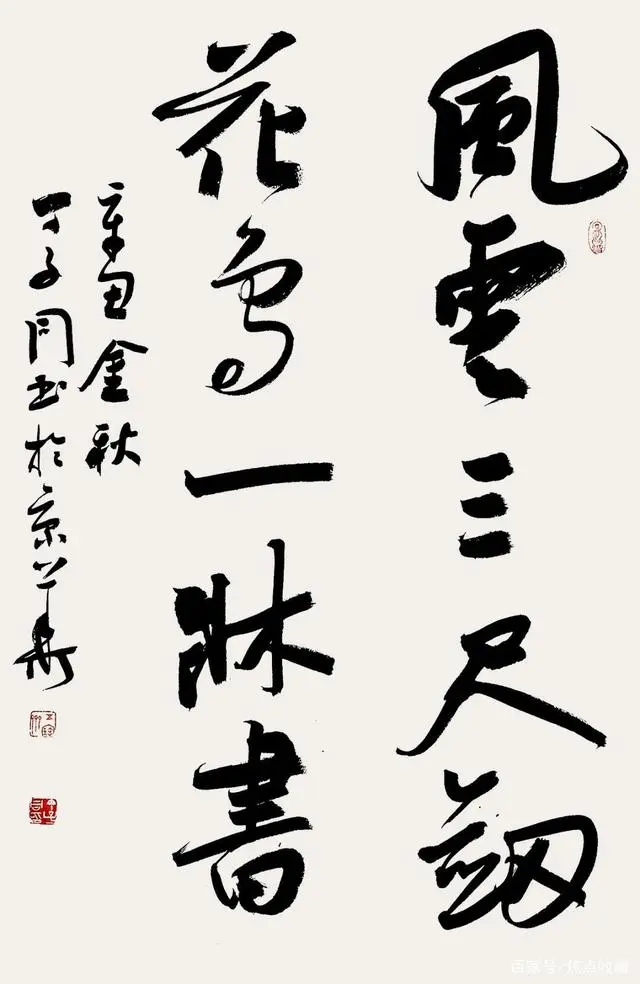 風雲三尺劍
花鳥一牀書
辛丑金秋
丁子同书於京華
百家号/焦点收藏